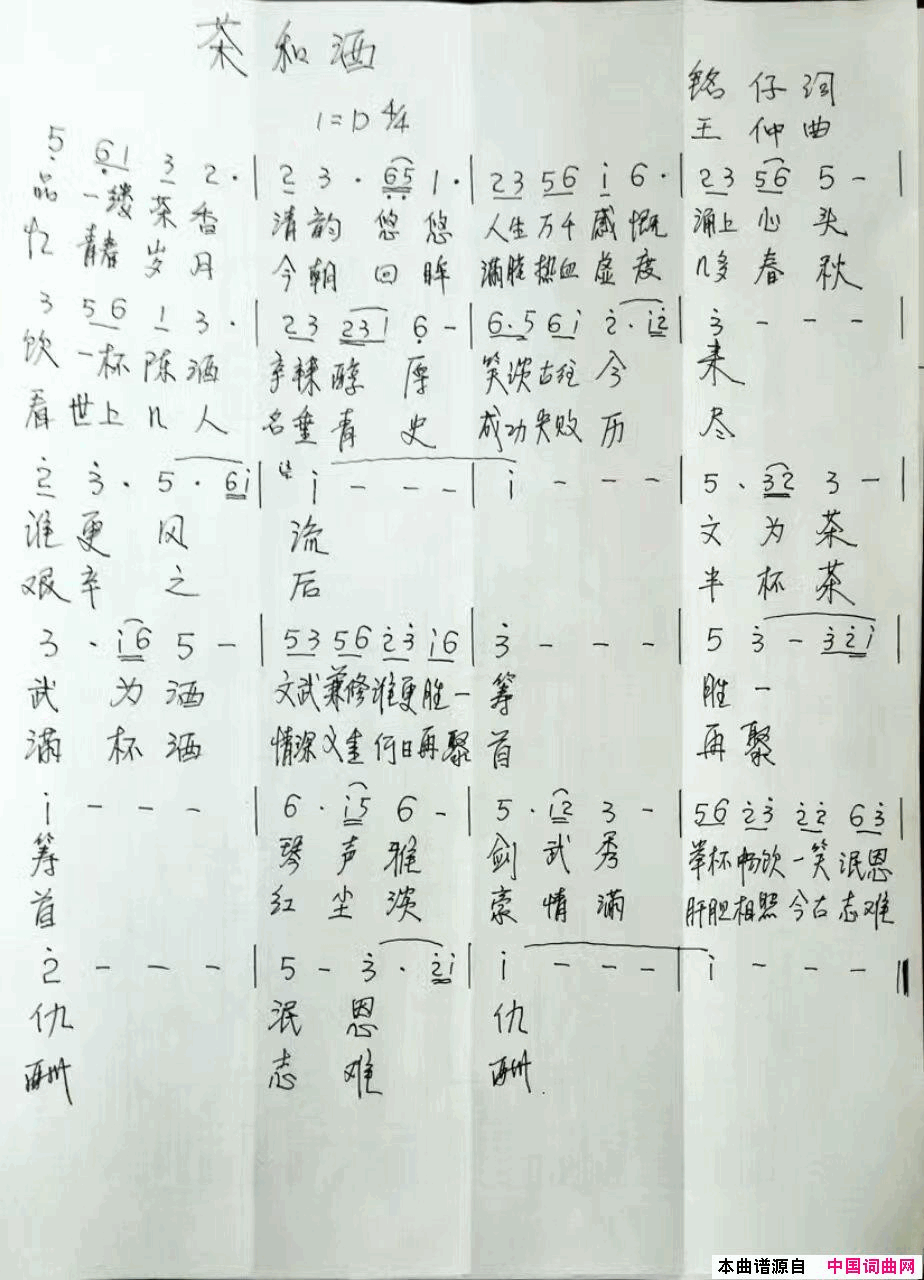 茶和酒
铭仔词
1=D 4/4
王仲曲
5 61 3 2· | 2 3· 65 1· | 23 56 i 6· | 23 56 5 - |
品一缕茶香 清韵悠悠 人生万千感慨 涌上心头
忆青春岁月 今朝回眸 满腔热血虚度 几多春秋
3 56 1 3· | 23 231 6 - | 6·5 6i 2·i2 | 3 - - - |
饮一杯陈酒 辛辣醇厚 笑谈古往今 来
看世上几人 名垂青史 成功失败历 尽
2 3· 5·6i | i - - - | i - - - | 5·32 3 - |
谁更风 流 文为茶
艰辛之 后 半杯茶
3·i6 5 - | 53 56 23 i6 | 3 - - - | 5 3 - 32i |
武为酒 文武兼修谁更胜一 筹 胜一
满杯酒 情深义重何日再聚 首 再聚
i - - - | 6·i5 6 - | 5·i2 3 - | 56 23 22 63 |
筹 琴声雅 剑武秀 举杯畅饮一笑泯恩
首 红尘淡 豪情满 肝胆相照今古志难
2 - - - | 5 - 3·2i | i - - - | i - - - ‖
仇 泯恩 仇
酬 志难 酬
本曲谱源自 中国词曲网